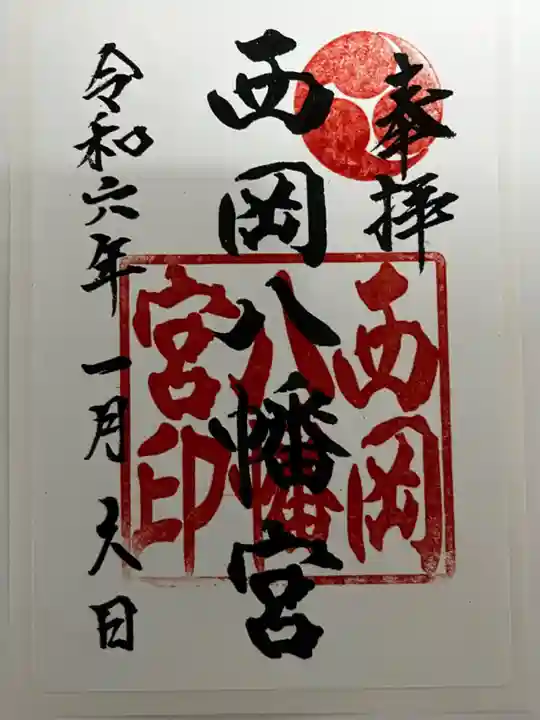 奉拝
西岡八幡宮
西岡
八幡
宮印
令和六年一月六日